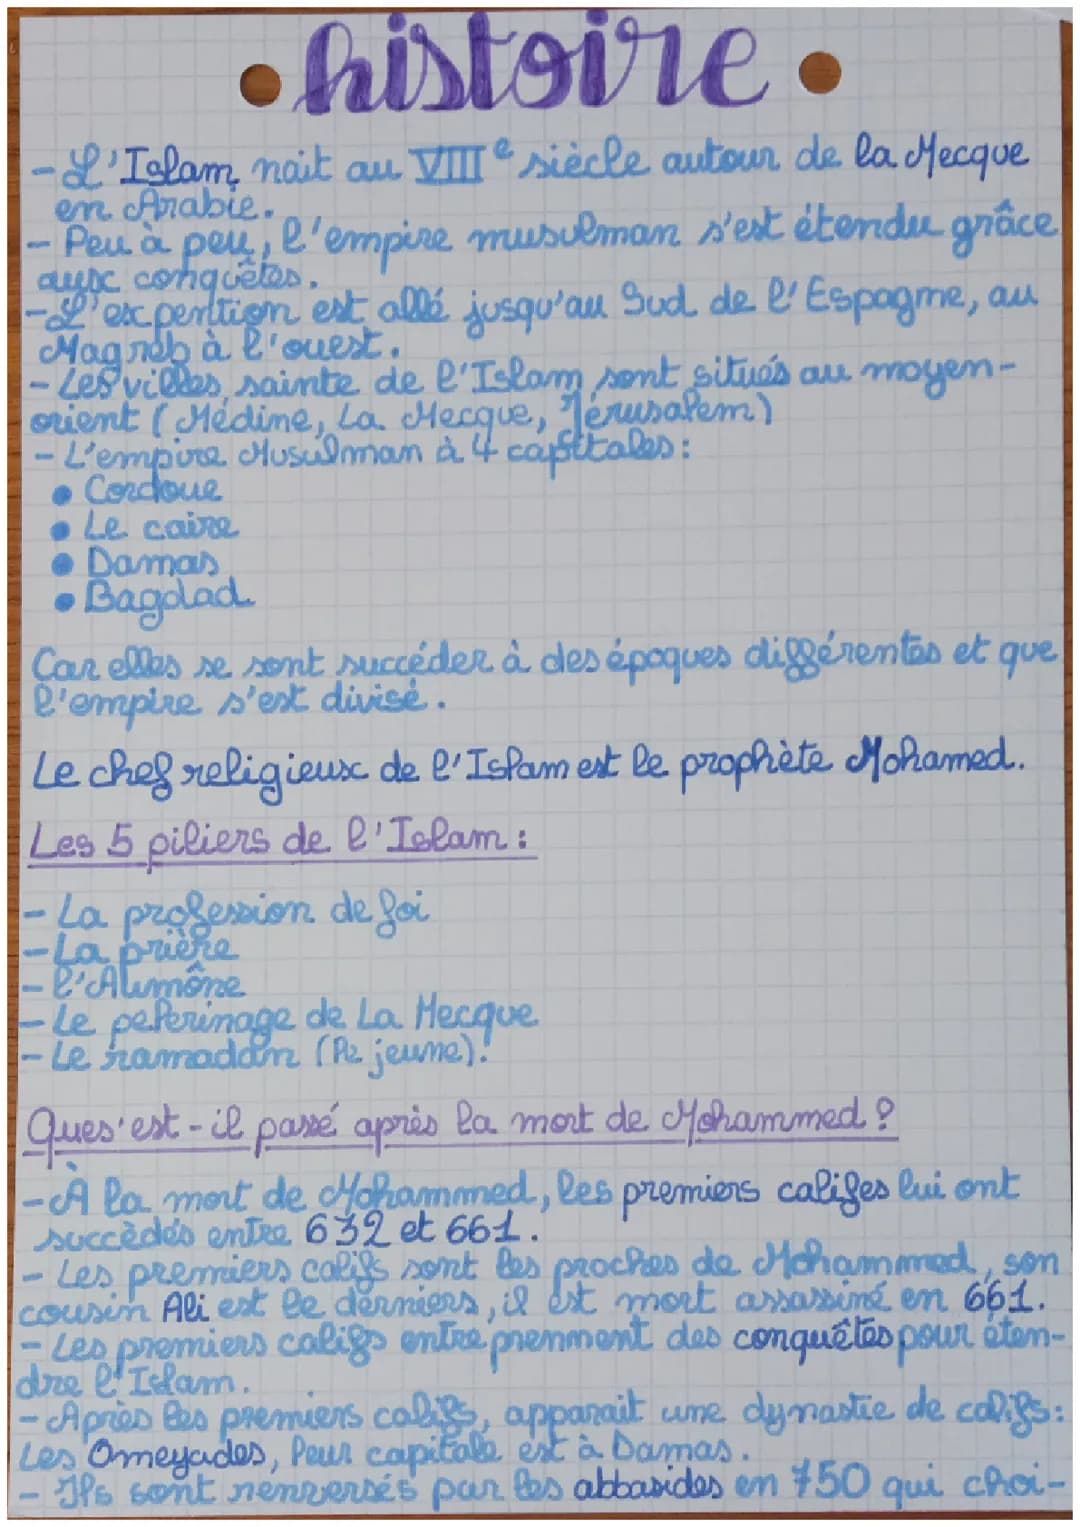 histoire
- L'Islam nait au VIII e siècle autour de la Mecque
en Arabie.
- Peu à peu, l'empire musulman s'est étendu grâce
aux conquêtes.
- L'expention est allé jusqu'au Sud de l'Espagne, au
Magreb à l'ouest.
- Les villes sainte de l'Islam sont situés au moyen-
orient (Médine, La Mecque, Jérusalem)
- L'empire Musulman à 4 capitales :
• Cordoue
• Le caire
• Damas
• Bagdad
Car elles se sont succéder à des époques différentes et que
l'empire s'est divisé.
Le chef religieux de l'Islam est le prophète Mohamed.
Les 5 piliers de l'Islam :
- La profession de foi
- La prière
- l'Aumône
- Le pelerinage de La Mecque
- Le ramadan (le jeune).
Ques'est-il passé après la mort de Mohammed ?
- À la mort de Mohammed, les premiers califes lui ont
succèdés entre 632 et 661.
- Les premiers califs sont les proches de Mohammed, son
cousin Ali est le derniers, il est mort assassiné en 661.
- Les premiers califs entreprenment des conquêtes pour éten-
dre l'Islam.
- Après les premiers califs, apparait une dynastie de califs :
Les Omeyades, leur capitale est à Damas.
- Ils sont renversés par les abbasides en 750 qui choi-